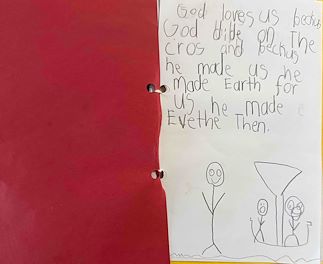 God loves us beckus
God dide on The
cros and beckus
he made us he
made Earth for
us he made
Evethe Then.